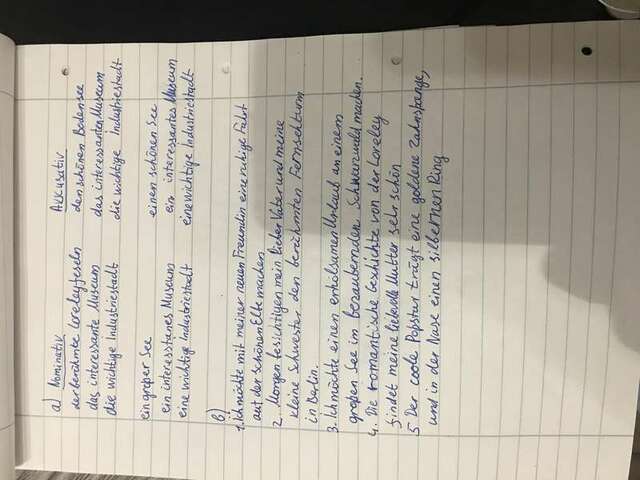 a) Nominativ Akkusativ
der berühmte Loreleyfelsen den schönen Bodensee
das interessante Museum das interessantes Museum
die wichtige Industriestadt die wichtige Industriestadt
ein großer See einen schönen See
ein interesstanes Museum ein interessantes Museum
eine wichtige Industriestadt eine wichtige Industriestadt
b)
1. Ich möchte mit meiner neuen Freundin eine ruhige Fahrt
auf der schönen Elbe machen
2. Morgen besichtigen mein lieber Vater und meine
kleine Schwester den berühmten Fernsehturm
in Berlin.
3. Ich möchte einen erholsamen Urlaub an einem
großen See im bezaubernden Schwarzwald machen.
4. Die romantische Geschichte von der Loreley
findet meine liebevolle Mutter sehr schön
5 Der coole Popstar trägt eine goldene Zahnspange,
und in der Nase einen silbernen Ring